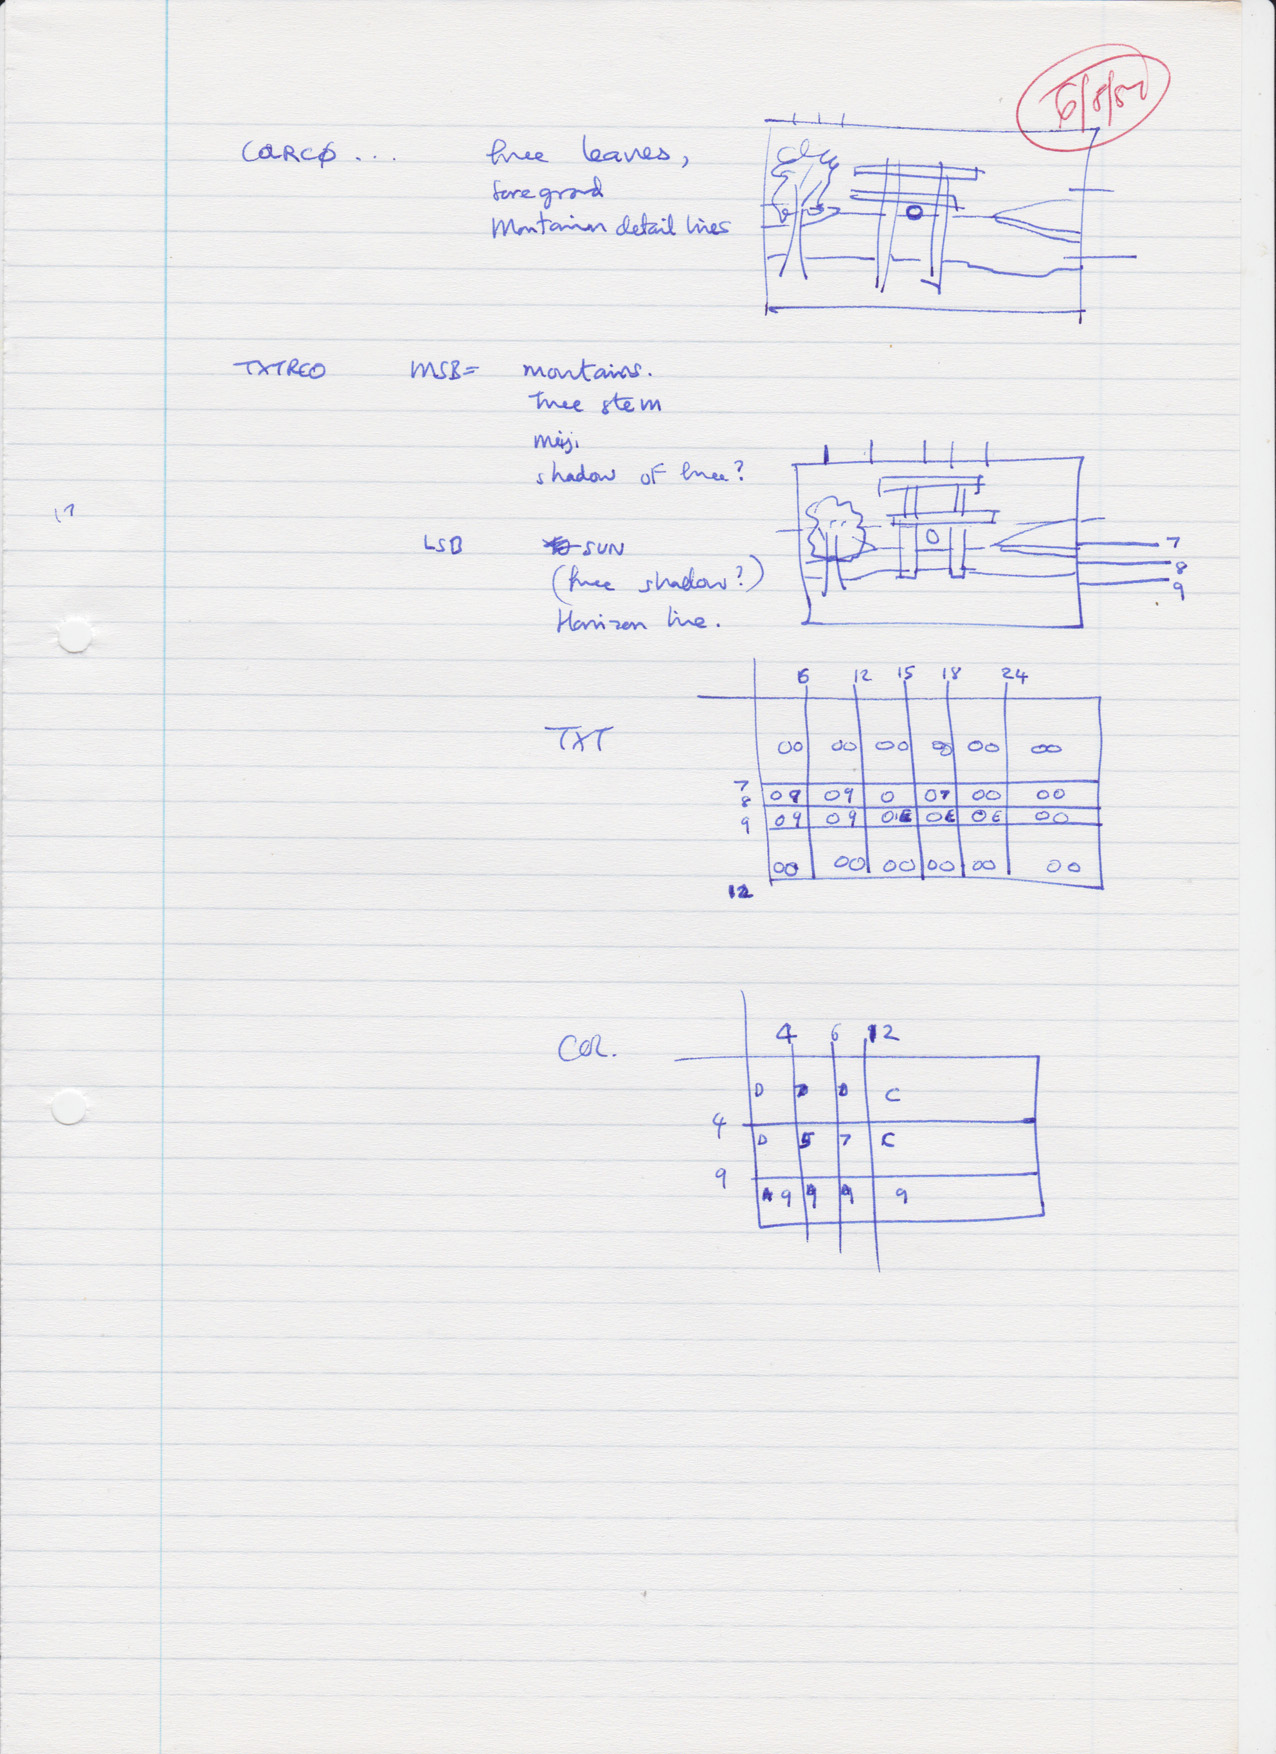 6/8/87
COLRC0 ... tree leaves,
foregrond
Montainon detail lines
TXTREO MSB= montains.
tree stem
shadow of tree?
LSB SUN
(tree shadow?)
Horizon line.
7
8
9
6 12 15 18 24
TXT
00 00 00 00 00 00
7
8 08 09 0 07 00 00
9 09 09 0E 0E 0E 00
00 00 00 00 00 00
12
4 6 12
COL.
D D C
4
D 5 7 C
9
9 9 9 9